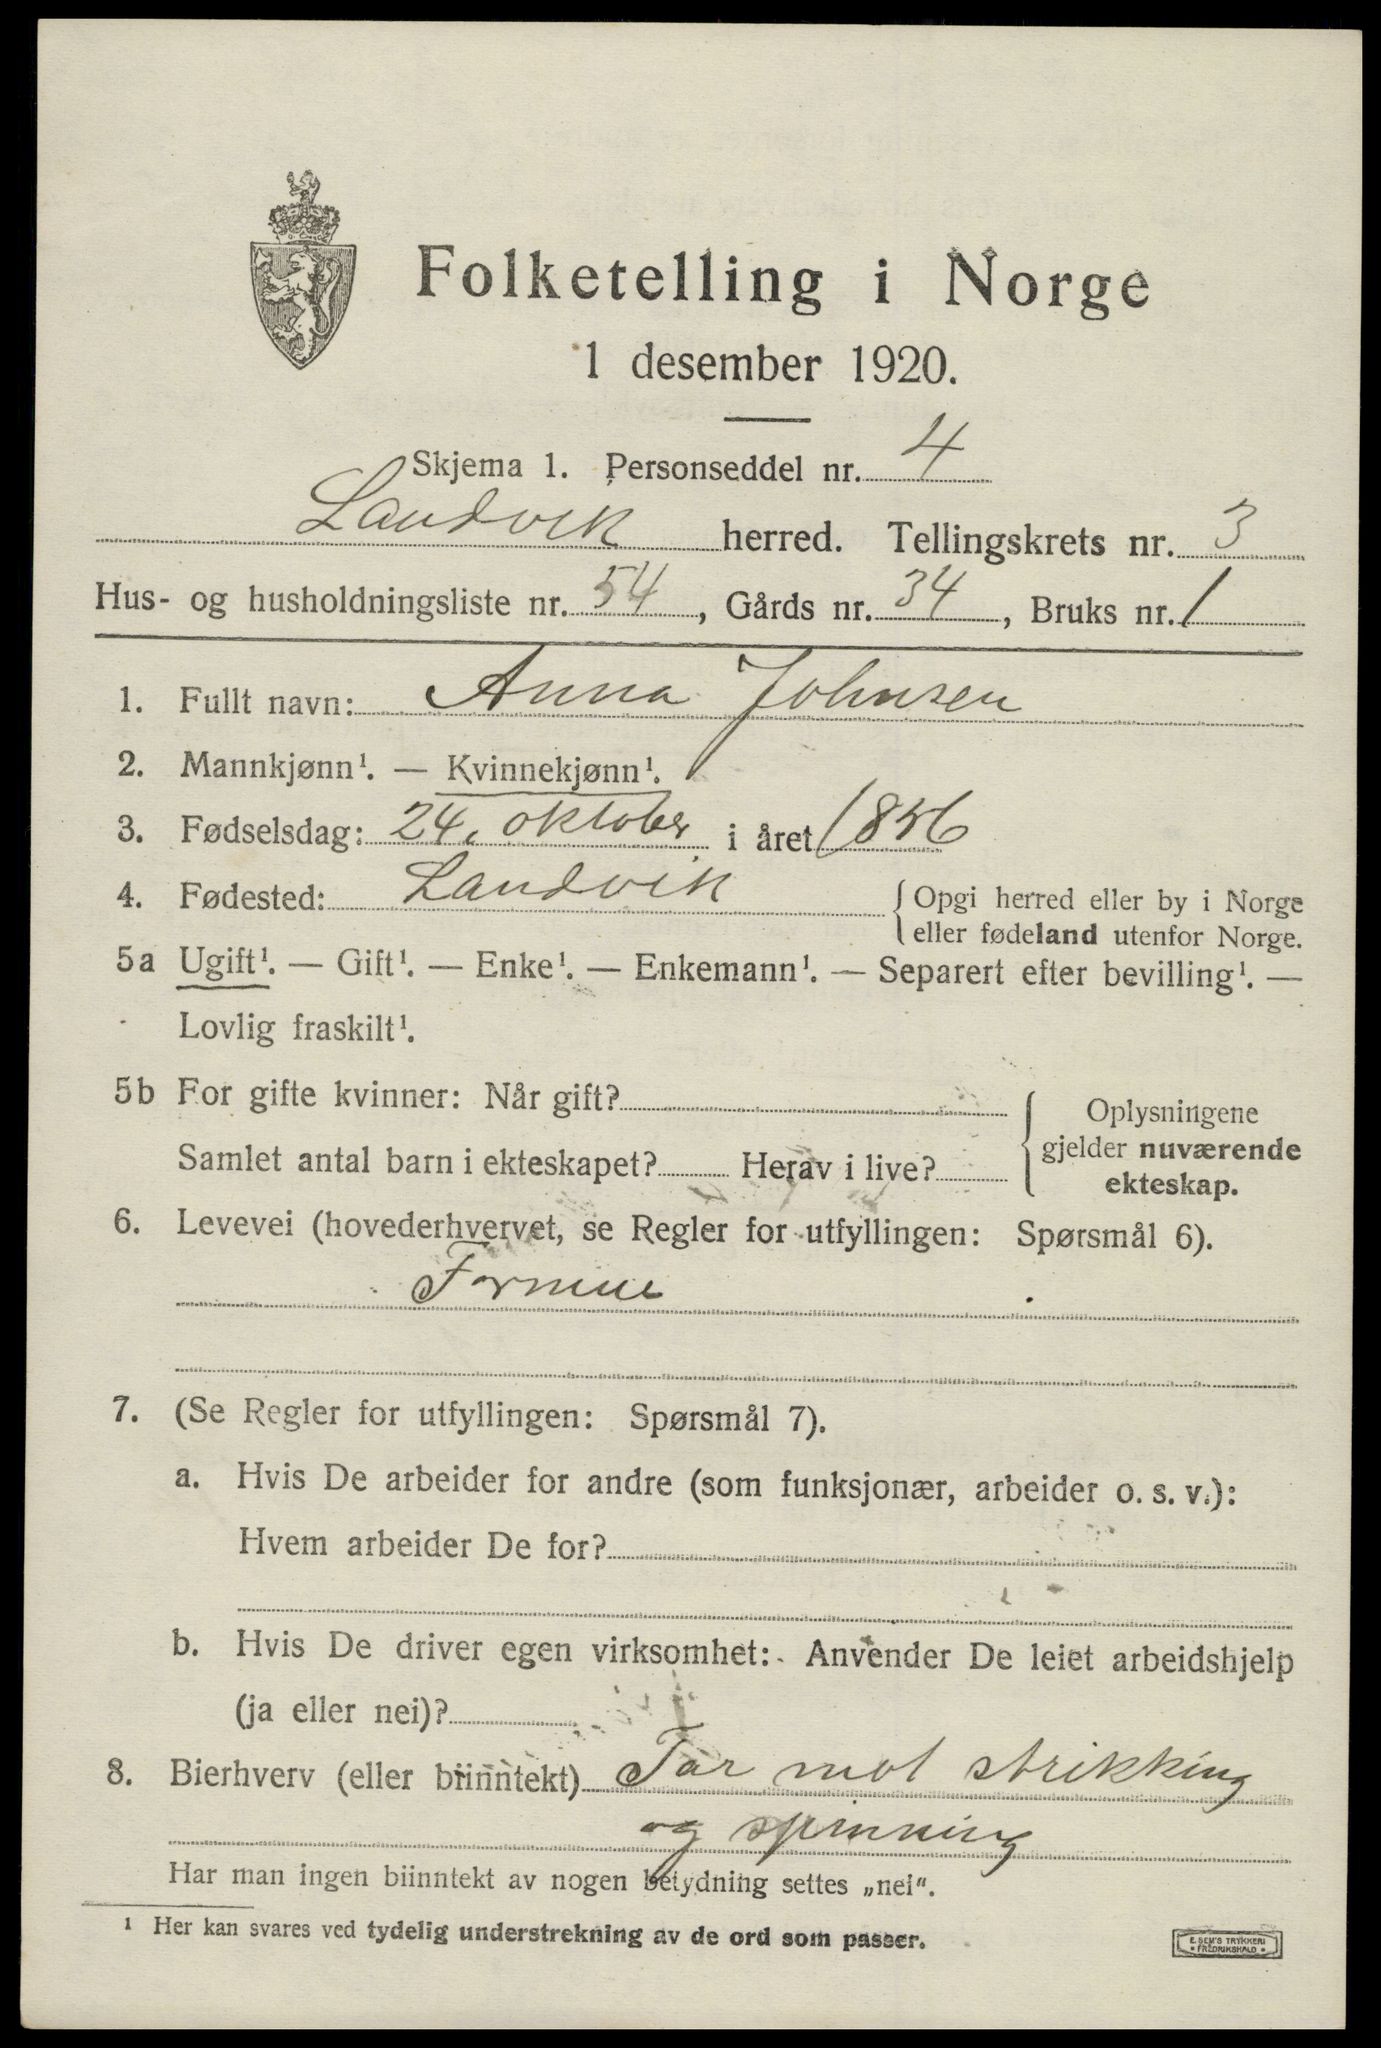 Folketelling i Norge
1 desember 1920.
Skjema 1. Personseddel nr. 4
Landvik herred. Tellingskrets nr. 3
Hus- og husholdningsliste nr. 54, Gårds nr. 34, Bruks nr. 1
1. Fullt navn: Anna Johnsen
2. Mannkjønn¹. — Kvinnekjønn¹.
3. Fødselsdag: 24. oktober i året 1856
4. Fødested: Landvik { Opgi herred eller by i Norge
eller fødeland utenfor Norge.
5a Ugift¹. — Gift¹. — Enke¹. — Enkemann¹. — Separert efter bevilling¹. —
Lovlig fraskilt¹.
5b For gifte kvinner: Når gift?
Samlet antal barn i ekteskapet? Herav i live?
Oplysningene
gjelder nuværende
ekteskap.
6. Levevei (hovederhvervet, se Regler for utfyllingen: Spørsmål 6).
Formue
7. (Se Regler for utfyllingen: Spørsmål 7).
a. Hvis De arbeider for andre (som funksjonær, arbeider o. s. v.):
Hvem arbeider De for?
b. Hvis De driver egen virksomhet: Anvender De leiet arbeidshjelp
(ja eller nei)?
8. Bierhverv (eller biinntekt) Tar mot strikking
og spinning
Har man ingen biinntekt av nogen betydning settes „nei“.
¹ Her kan svares ved tydelig understrekning av de ord som passer.
E. SEM'S TRYKKERI
• FREDRIKSHALD •